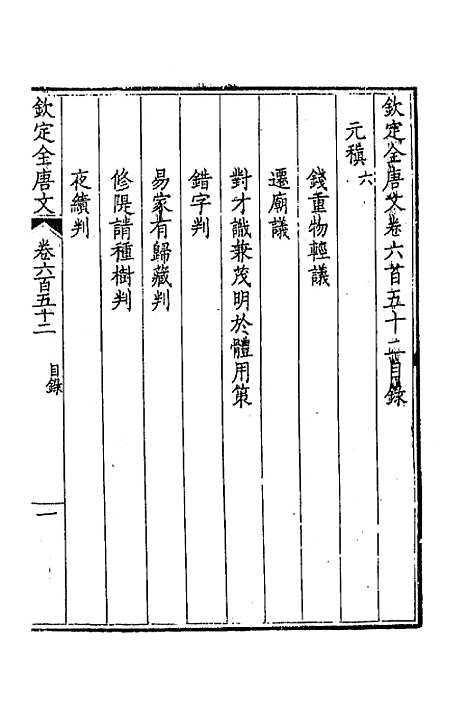 欽定全唐文卷六百五十二目錄
元稹六
錢重物輕議
遷廟議
對才識兼茂明於體用策
錯字判
易家有歸藏判
修隄請種樹判
夜績判
欽定全唐文 卷六百五十二 目錄 一